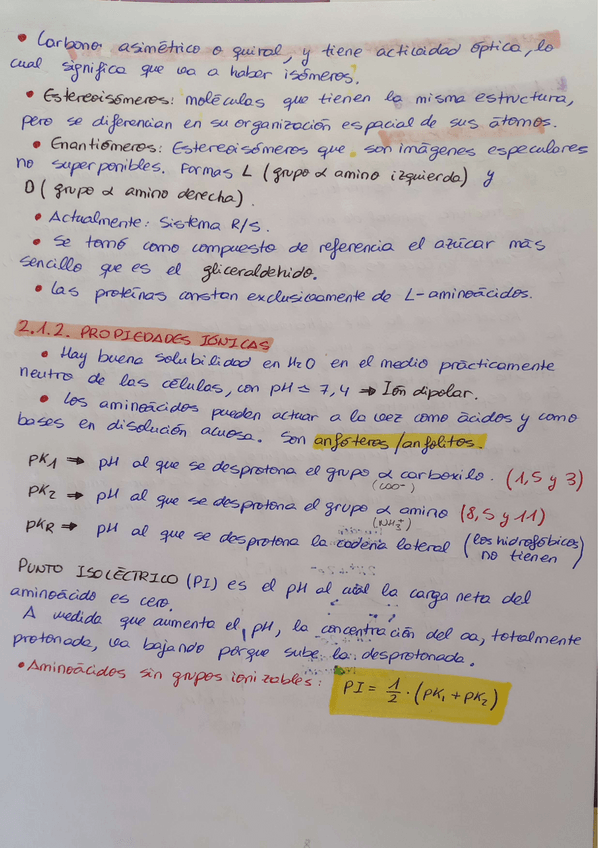 • Carbono asimétrico o quiral, y tiene actividad óptica, lo
cual significa que va a haber isómeros.
• Estereoisómeros: moléculas que tienen la misma estructura,
pero se diferencian en su organización espacial de sus átomos.
• Enantiómeros: Estereoisómeros que son imágenes especulares
no superponibles. Formas L (grupo α amino izquierda) y
D (grupo α amino derecha).
• Actualmente: Sistema R/S.
• Se tomó como compuesto de referencia el azúcar más
sencillo que es el gliceraldehido.
• Las proteínas constan exclusivamente de L-aminoácidos.
2.1.2. PROPIEDADES IÓNICAS
• Hay buena solubilidad en H2O en el medio prácticamente
neutro de las células, con pH ≃ 7,4 ⇒ Ión dipolar.
• Los aminoácidos pueden actuar a la vez como ácidos y como
bases en disolución acuosa. Son anfóteros/anfolitos.
pK1 ⇒ pH al que se desprotona el grupo α carboxilo. (1,5 y 3)
(COO-)
pK2 ⇒ pH al que se desprotona el grupo α amino (8,5 y 11)
(NH3+)
pKR ⇒ pH al que se desprotona la cadena lateral (los hidrofóbicos
no tienen)
PUNTO ISOLÉCTRICO (PI) es el pH al cual la carga neta del
aminoácido es cero.
A medida que aumenta el pH, la concentración del aa, totalmente
protonada, va bajando porque sube la desprotonada.
• Aminoácidos sin grupos ionizables: PI = 1/2 · (pK1 + pK2)
8